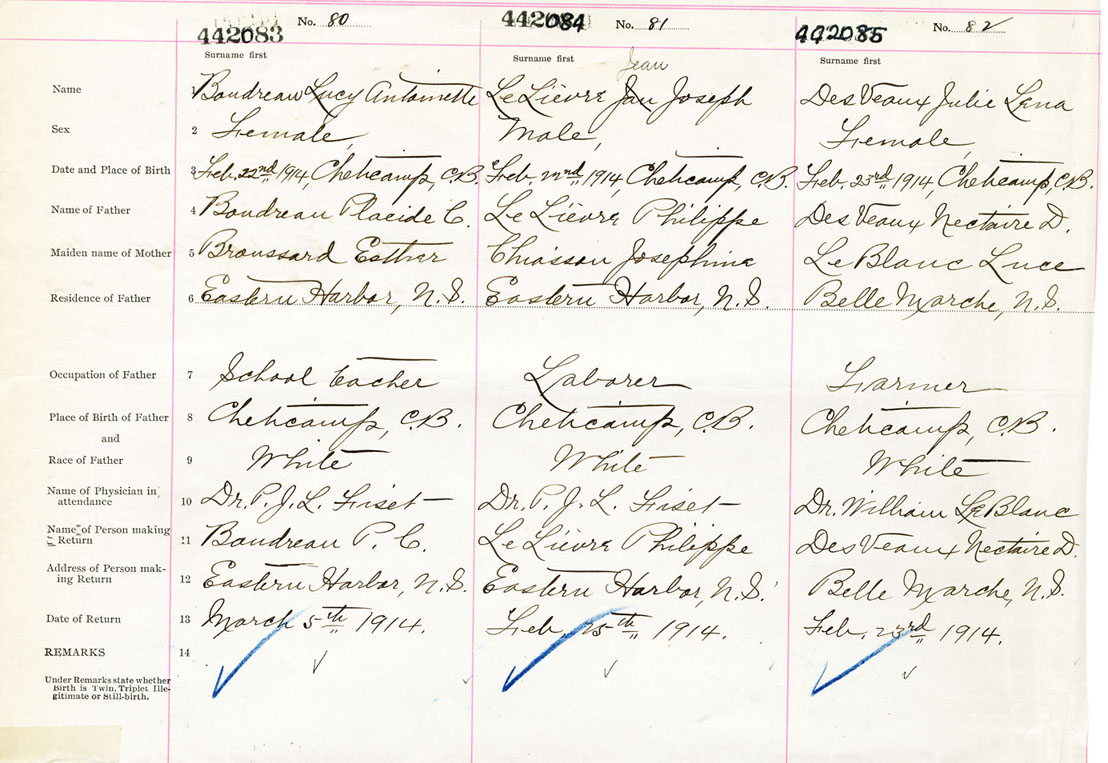 442083 No. 80 442084 No. 81 442085 No. 82
Surname first Surname first Jean Surname first
Name 1 Boudreau Lucy Antoinette LeLièvre Jan Joseph DesVeaux Julie Lena
Sex 2 Female, Male, Female,
Date and Place of Birth 3 Feb. 22nd 1914, Cheticamp, C.B. Feb. 22nd 1914, Cheticamp, C.B. Feb. 23rd 1914, Cheticamp, C.B.
Name of Father 4 Boudreau Placide C. LeLièvre Philippe DesVeaux Nectaire D.
Maiden name of Mother 5 Broussard Esther Chiasson Josephine LeBlanc Luce
Residence of Father 6 Eastern Harbor, N.S. Eastern Harbor, N.S. Belle Marche, N.S.
Occupation of Father 7 School Teacher Laborer Farmer
Place of Birth of Father 8 Cheticamp, C.B. Cheticamp, C.B. Cheticamp, C.B.
and
Race of Father 9 White White White
Name of Physician in
attendance 10 Dr. P. J. L. Fiset Dr. P. J. L. Fiset Dr. William LeBlanc
Name of Person making
Return 11 Boudreau P. C. LeLièvre Philippe DesVeaux Nectaire D.
Address of Person mak-
ing Return 12 Eastern Harbor, N.S. Eastern Harbor, N.S. Belle Marche, N.S.
Date of Return 13 March 5th 1914. Feb. 25th 1914. Feb. 23rd 1914.
REMARKS 14
Under Remarks state whether
Birth is Twin, Triplet Ille-
gitimate or Still-birth.